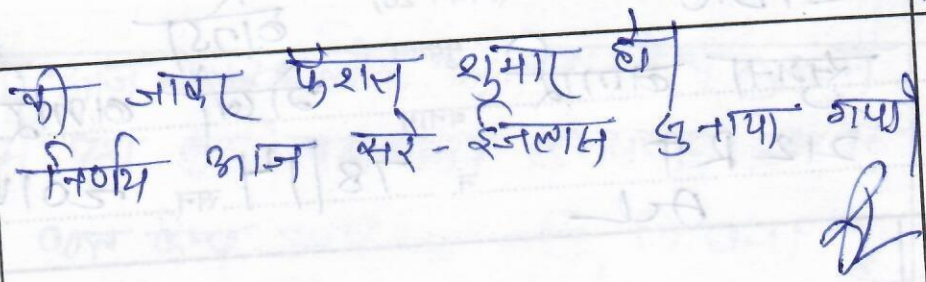 की जाकर फैशल शुमार हो।
निर्णय आज सरे-ईजलास सुनाया गया।